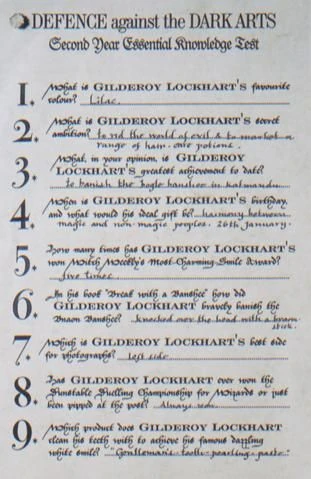 DEFENCE against the DARK ARTS
Second Year Essential Knowledge Test
1. What is GILDEROY LOCKHART'S favourite
colour? Lilac.
2. What is GILDEROY LOCKHART'S secret
ambition? to rid the world of evil & to market a
range of hair-care potions.
3. What, in your opinion, is GILDEROY
LOCKHART'S greatest achievement to date?
to banish the banshee in
4. When is GILDEROY LOCKHART'S birthday,
and what would his ideal gift be? harmony between
magic and non-magic peoples. 26th January.
5. How many times has GILDEROY LOCKHART'S
won Witch Weekly's Most-Charming-Smile Award?
five times.
6. In his book 'Break with a Banshee' how did
GILDEROY LOCKHART bravely banish the
Banshee? knocked over the head with a broom
stick.
7. Which is GILDEROY LOCKHART'S best side
for photographs? side
8. Has GILDEROY LOCKHART ever won the
Dunstable Duelling Championship for Wizards or just
been pipped at the post? Always won.
9. Which product does GILDEROY LOCKHART
clean his teeth with to achieve his famous dazzling
white smile? "Gentleman's tooth-pearling-paste"